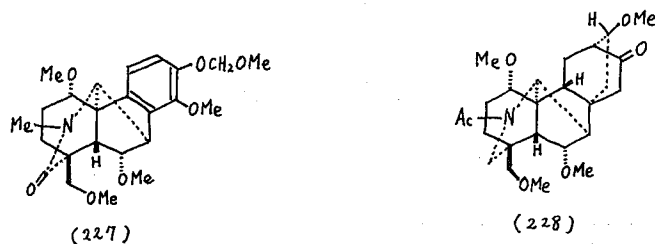 MeO
OCH2OMe
OMe
Me
N
H
O
OMe
OMe
(227)
H
OMe
MeO
O
H
Ac
N
H
OMe
OMe
(228)